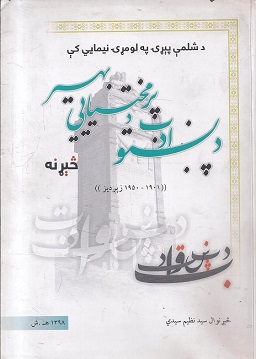 د شلمې پېړۍ په لومړۍ نيمايي کې
د پښتو ادب د پرمختيايي بهير
څېړنه
((۱۹۰۱ - ۱۹۵۰ زېږديز))
څېړنوال سيد نظيم سيدي
۱۳۹۸ هـ.ش